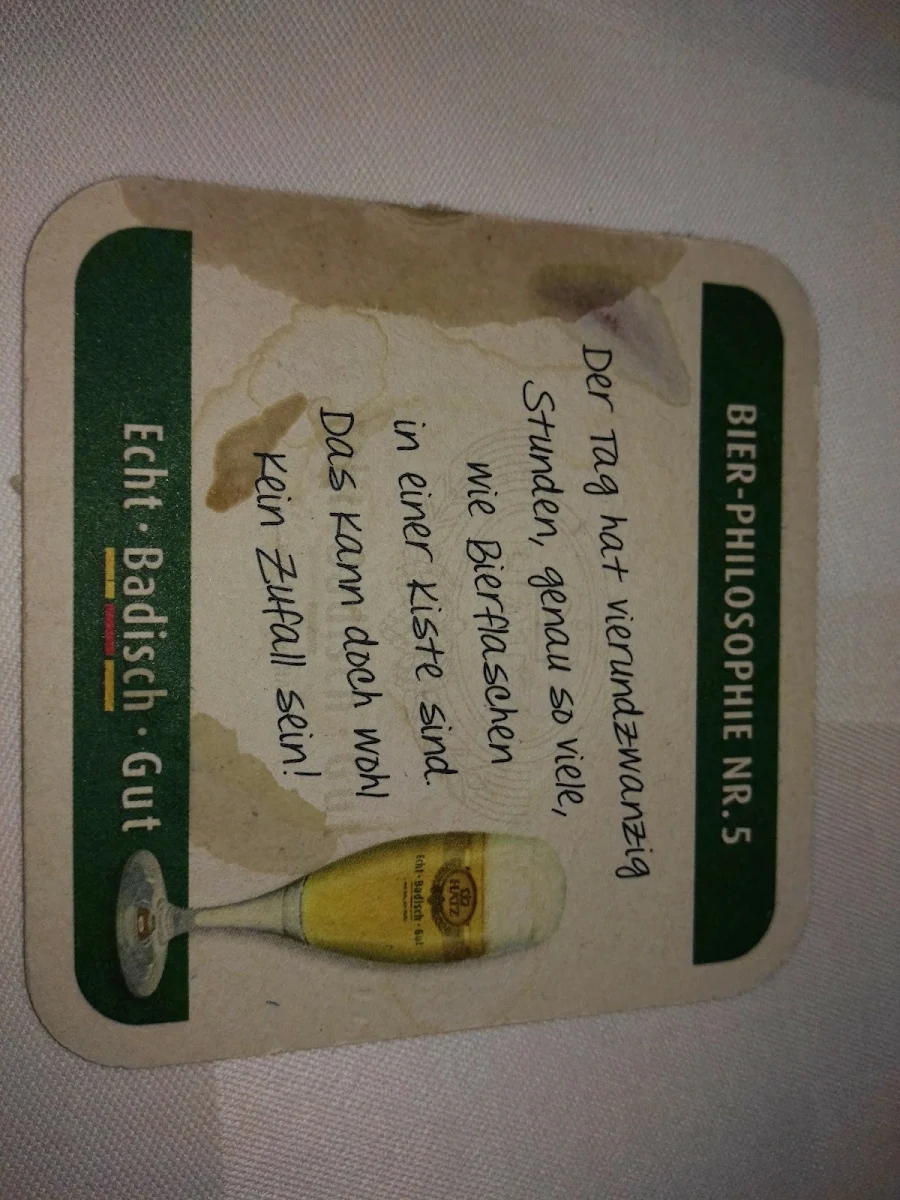 BIER-PHILOSOPHIE NR. 5
Der Tag hat vierundzwanzig
Stunden, genau so viele,
wie Bierflaschen
in einer Kiste sind.
Das kann doch wohl
kein Zufall sein!
HATZ
Echt · Badisch · Gut
Echt · Badisch · Gut